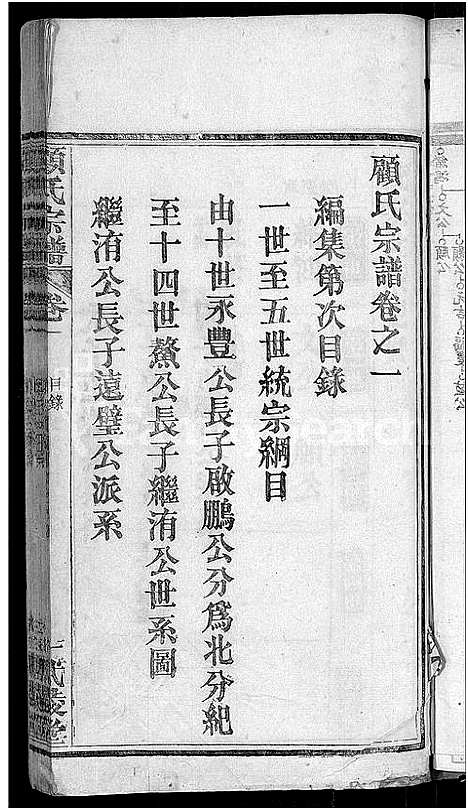 顧氏宗譜卷之一
編集第次目錄
一世至五世統宗綱目
由十世永豐公長子啟鵬公分爲北分紀
至十四世鰲公長子繼洧公世系圖
繼洧公長子遠璧公派系
顧氏宗譜
卷一
目錄